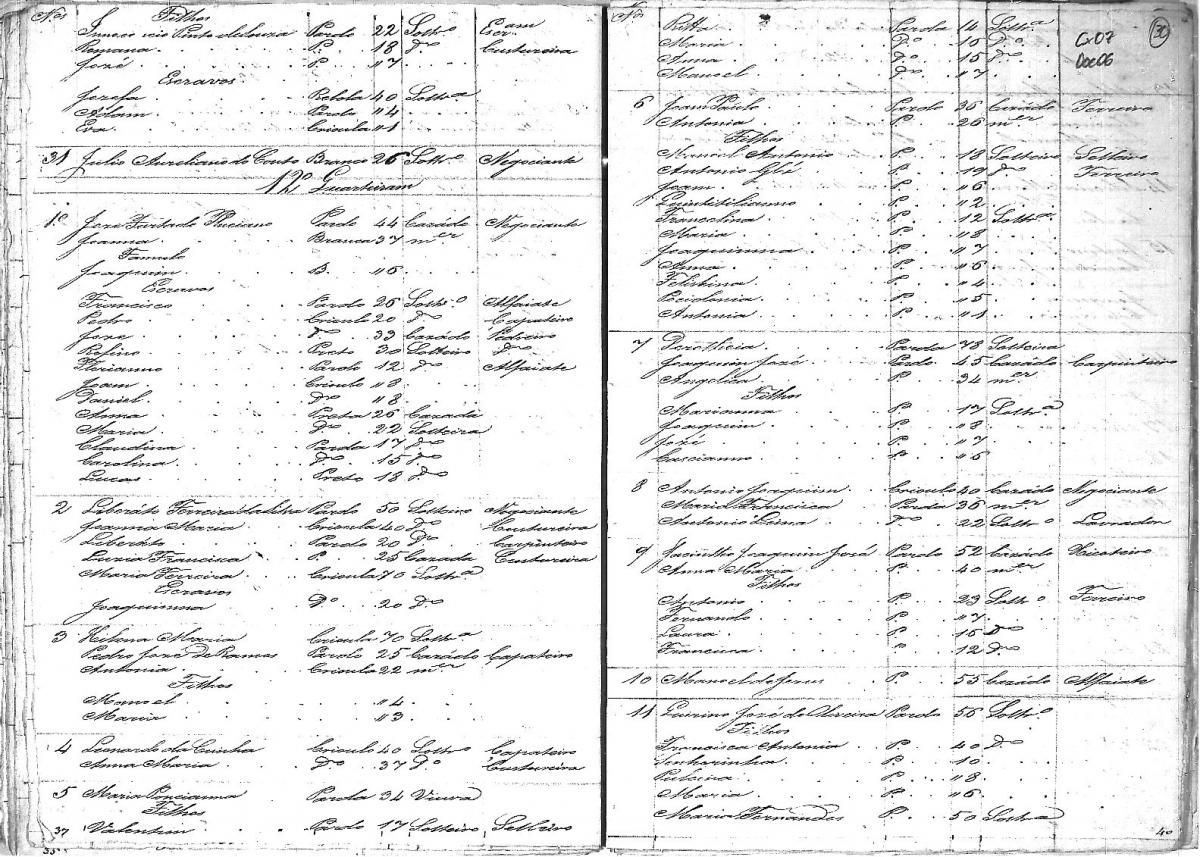 Nos
Filhos
Pinto de Souza Pardo 22 Soltr.o
Romana P. 18 Do Custureira
Jozé P. "7
Escravos
Jozefa Rebola 40 Soltr.a
Adam Pardo "4
Eva Crioula "1
31 Julio Aureliano do Couto Branco 26 Soltr.o Negociante
12º Quarteiram
1º Joze Furtado Pardo 44 Cazádo Negociante
Joanna Branca 37 m.er
Famulo
Joaquim B. "6
Escravos
Francisco Pardo 26 Soltr.o Alfaiate
Pedro Crioulo 20 Do Çapateiro
Joze Do 33 Cazádo Pedreiro
Rofino Preto 30 Solteiro Do
Florianno Pardo 12 Do Alfaiate
Joam Crioulo "8
Daniel Do "8
Anna Preta 26 Cazada
Maria Do 22 Solteira
Claudina Parda 17 Do
Carolina Do 15 Do
Lucas Preto 18 Do
2 Liberáto Ferreira da Silva Pardo 50 Solteiro Negociante
Joanna Maria Crioula 40 Do Custureira
Liberáto Pardo 20 Do Carpinteiro
Luzia Francisca P. 25 Cazada Custureira
Maria Ferreira Crioula 70 Soltr.a
Escravos
Joaquinna Do 20 Do
3 Helena Maria Crioula 70 Soltr.a
Pedro Jozé de Ramos Pardo 25 Cazádo Çapateiro
Antonia Crioula 22 m.er
Filhos
Manoel "4
Maria "3
4 Leonardo da Cunha Crioulo 40 Soltr.o Çapateiro
Anna Maria Do 37 Do Custureira
5 Maria Poncianna Parda 34 Viuva
Filhos
37 Valentim Pardo 17 Solteiro Selleiro
Nos
30
Cx07
Doc06
Ritta Parda 14 Soltr.a
Maria Do 16 Do
Anna Do 15 Do
Manoel Do "7
6 Joam Paulo Pardo 36 Cazádo Ferreiro
Antonia P. 26 m.er
Filhos
Manoel Antonio P. 18 Solteiro Selleiro
Antonio P. 19 Do Ferreiro
Joam P. "6
P. "2
Francelina P. 12 Soltr.a
Maria P. "8
Joaquimna P. "7
Anna P. "6
P. "4
P. "5
Antonia P. "1
7 Parda 78 Solteira
Joaquim Jozé Pardo 45 Cazádo Carpinteiro
Angelica P. 34 m.er
Filhos
Marianna P. 17 Soltr.a
Joaquim P. "8
Jozé P. "7
Cascianno P. "6
8 Antonio Joaquim Crioulo 40 Cazádo Negociante
Maria Francisca Parda 36 m.er
Antonio Do 22 Soltr.o Lavrador
9 Jacintho Joaquim Jozé Pardo 52 Cazádo
Anna Maria P. 40 m.er
Filhos
Antonio P. 23 Soltr.o Ferreiro
Fernando P. "7
Laura P. 15 Do
Francisca P. 12 Do
10 Manoel de Jesus P. 55 Cazádo Alfaiate
11 Quirino José de Oliveira Pardo 56 Soltr.o
Filhos
Francisca Antonia P. 40 Do
Senharinha P. 10
P. "8
Maria P. "6
Maria Fernandes P. 50 Soltr.a
40